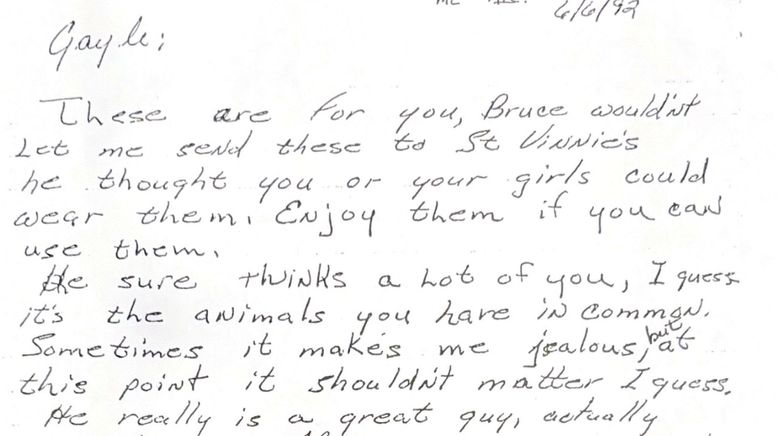 6/6/92
Gayle:
These are for you, Bruce wouldn't
Let me send these to St Vinnie's
he thought you or your girls could
wear them. Enjoy them if you can
use them.
He sure thinks a Lot of you, I guess
it's the animals you have in common.
Sometimes it makes me jealous, but at
this point it shouldn't matter I guess.
He really is a great guy, actually